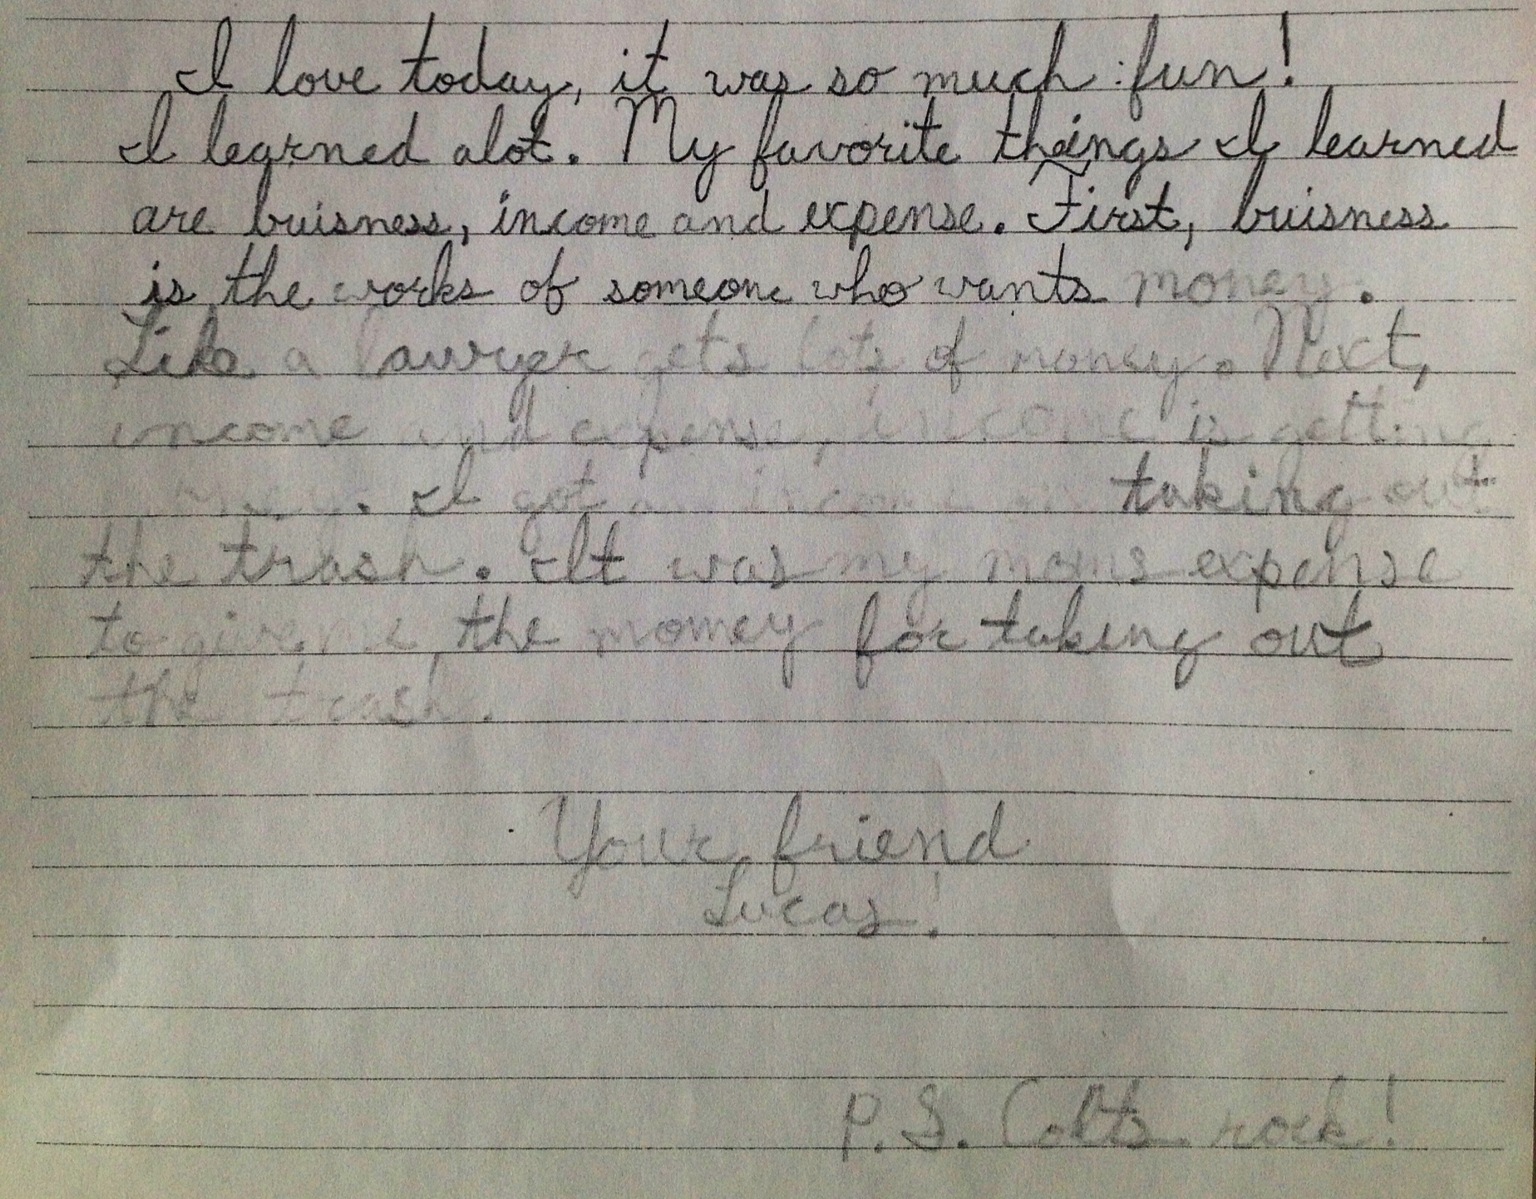 I love today, it was so much fun!
I learned alot. My favorite things I learned
are buisness, income and expense. First, buisness
is the works of someone who wants money.
Like a lawyer gets lots of money. Next,
income and expense, income is getting
money. I got an income on taking out
the trash. It was my moms expense
to give me the momey for taking out
the trash.
Your friend
Lucas!
P.S. Colts rock!